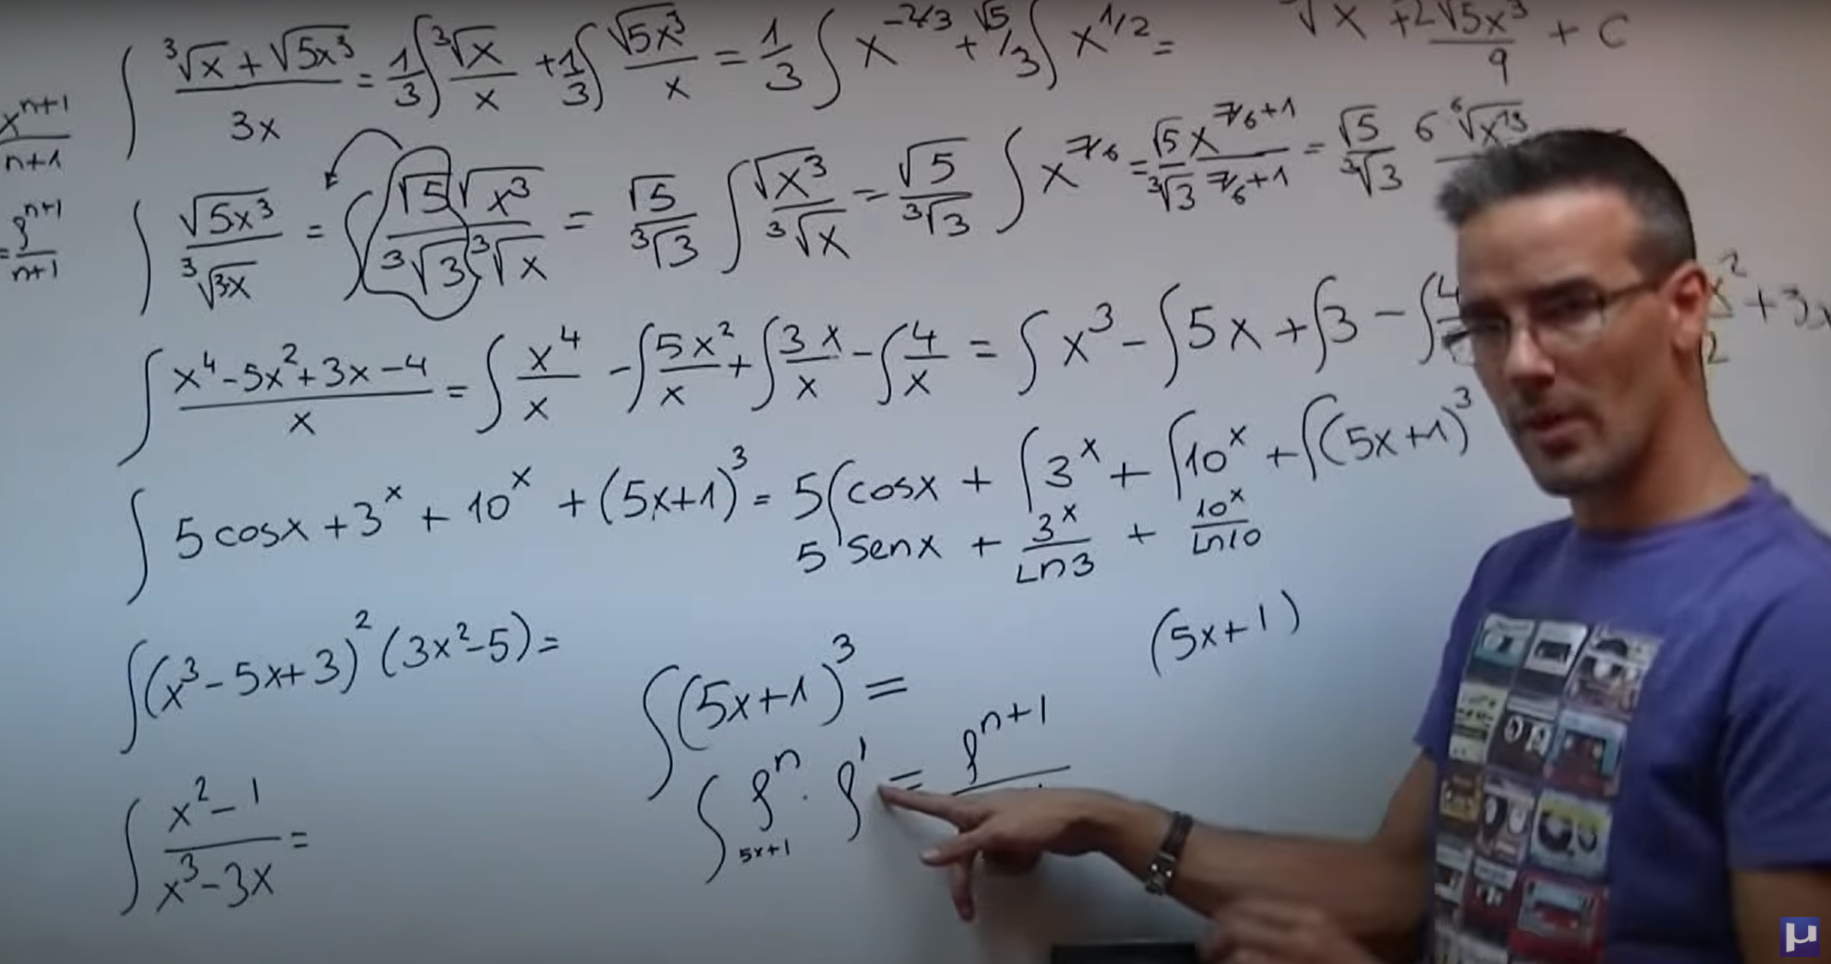 ∫ (∛x + √5x³)/3x = 1/3 ∫ ∛x/x + 1/3 ∫ √5x³/x = 1/3 ∫ x^-2/3 + √5/3 ∫ x^1/2 =
√x + 2√5x³/9 + C
x^n+1/n+1
∫ √5x³/∛3x = ∫ √5 √x³/∛3 ∛x = √5/∛3 ∫ √x³/∛x = √5/∛3 ∫ x^7/6 = √5/∛3 x^7/6+1/7/6+1 = √5/∛3 6 ⁶√x¹³
= f^n+1/n+1
∫ (x⁴-5x²+3x-4)/x = ∫ x⁴/x - ∫ 5x²/x + ∫ 3x/x - ∫ 4/x = ∫ x³ - ∫ 5x + ∫ 3 - ∫ 4
x²/2 + 3x
∫ 5cosx + 3^x + 10^x + (5x+1)³ = 5∫cosx + ∫3^x + ∫10^x + ∫(5x+1)³
5 senx + 3^x/Ln3 + 10^x/Ln10
∫ (x³-5x+3)² (3x²-5) =
(5x+1)
∫ (5x+1)³ =
∫ f^n · f' = f^n+1
5x+1
∫ x²-1/x³-3x =
μ